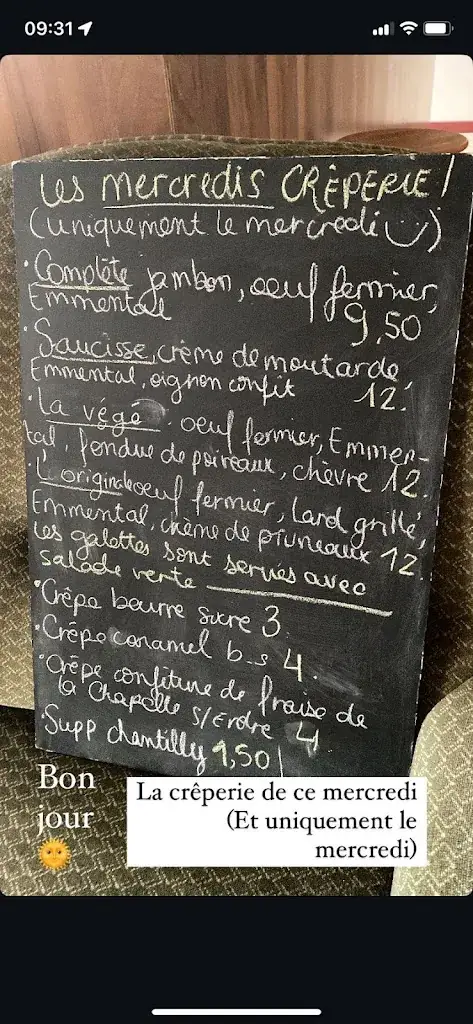 09:31
Les mercredis CRÊPERIE !
(uniquement le mercredi)
· Complète jambon, oeuf fermier,
Emmental
9,50
· Saucisse, crème de moutarde,
Emmental, oignon confit 12.
· La végé. oeuf fermier, Emmen-
tal, fondue de poireaux, chèvre 12.
· L'originale oeuf fermier, Lard grillé,
Emmental, crème de pruneaux 12
Les galettes sont servies avec
salade verte
· Crêpe beurre sucre 3.
· Crêpe caramel b-s 4.
· Crêpe confiture de fraise de
la Chapelle s/Erdre 4
· Supp chantilly 1,50
Bon
jour
🌞
La crêperie de ce mercredi
(Et uniquement le
mercredi)